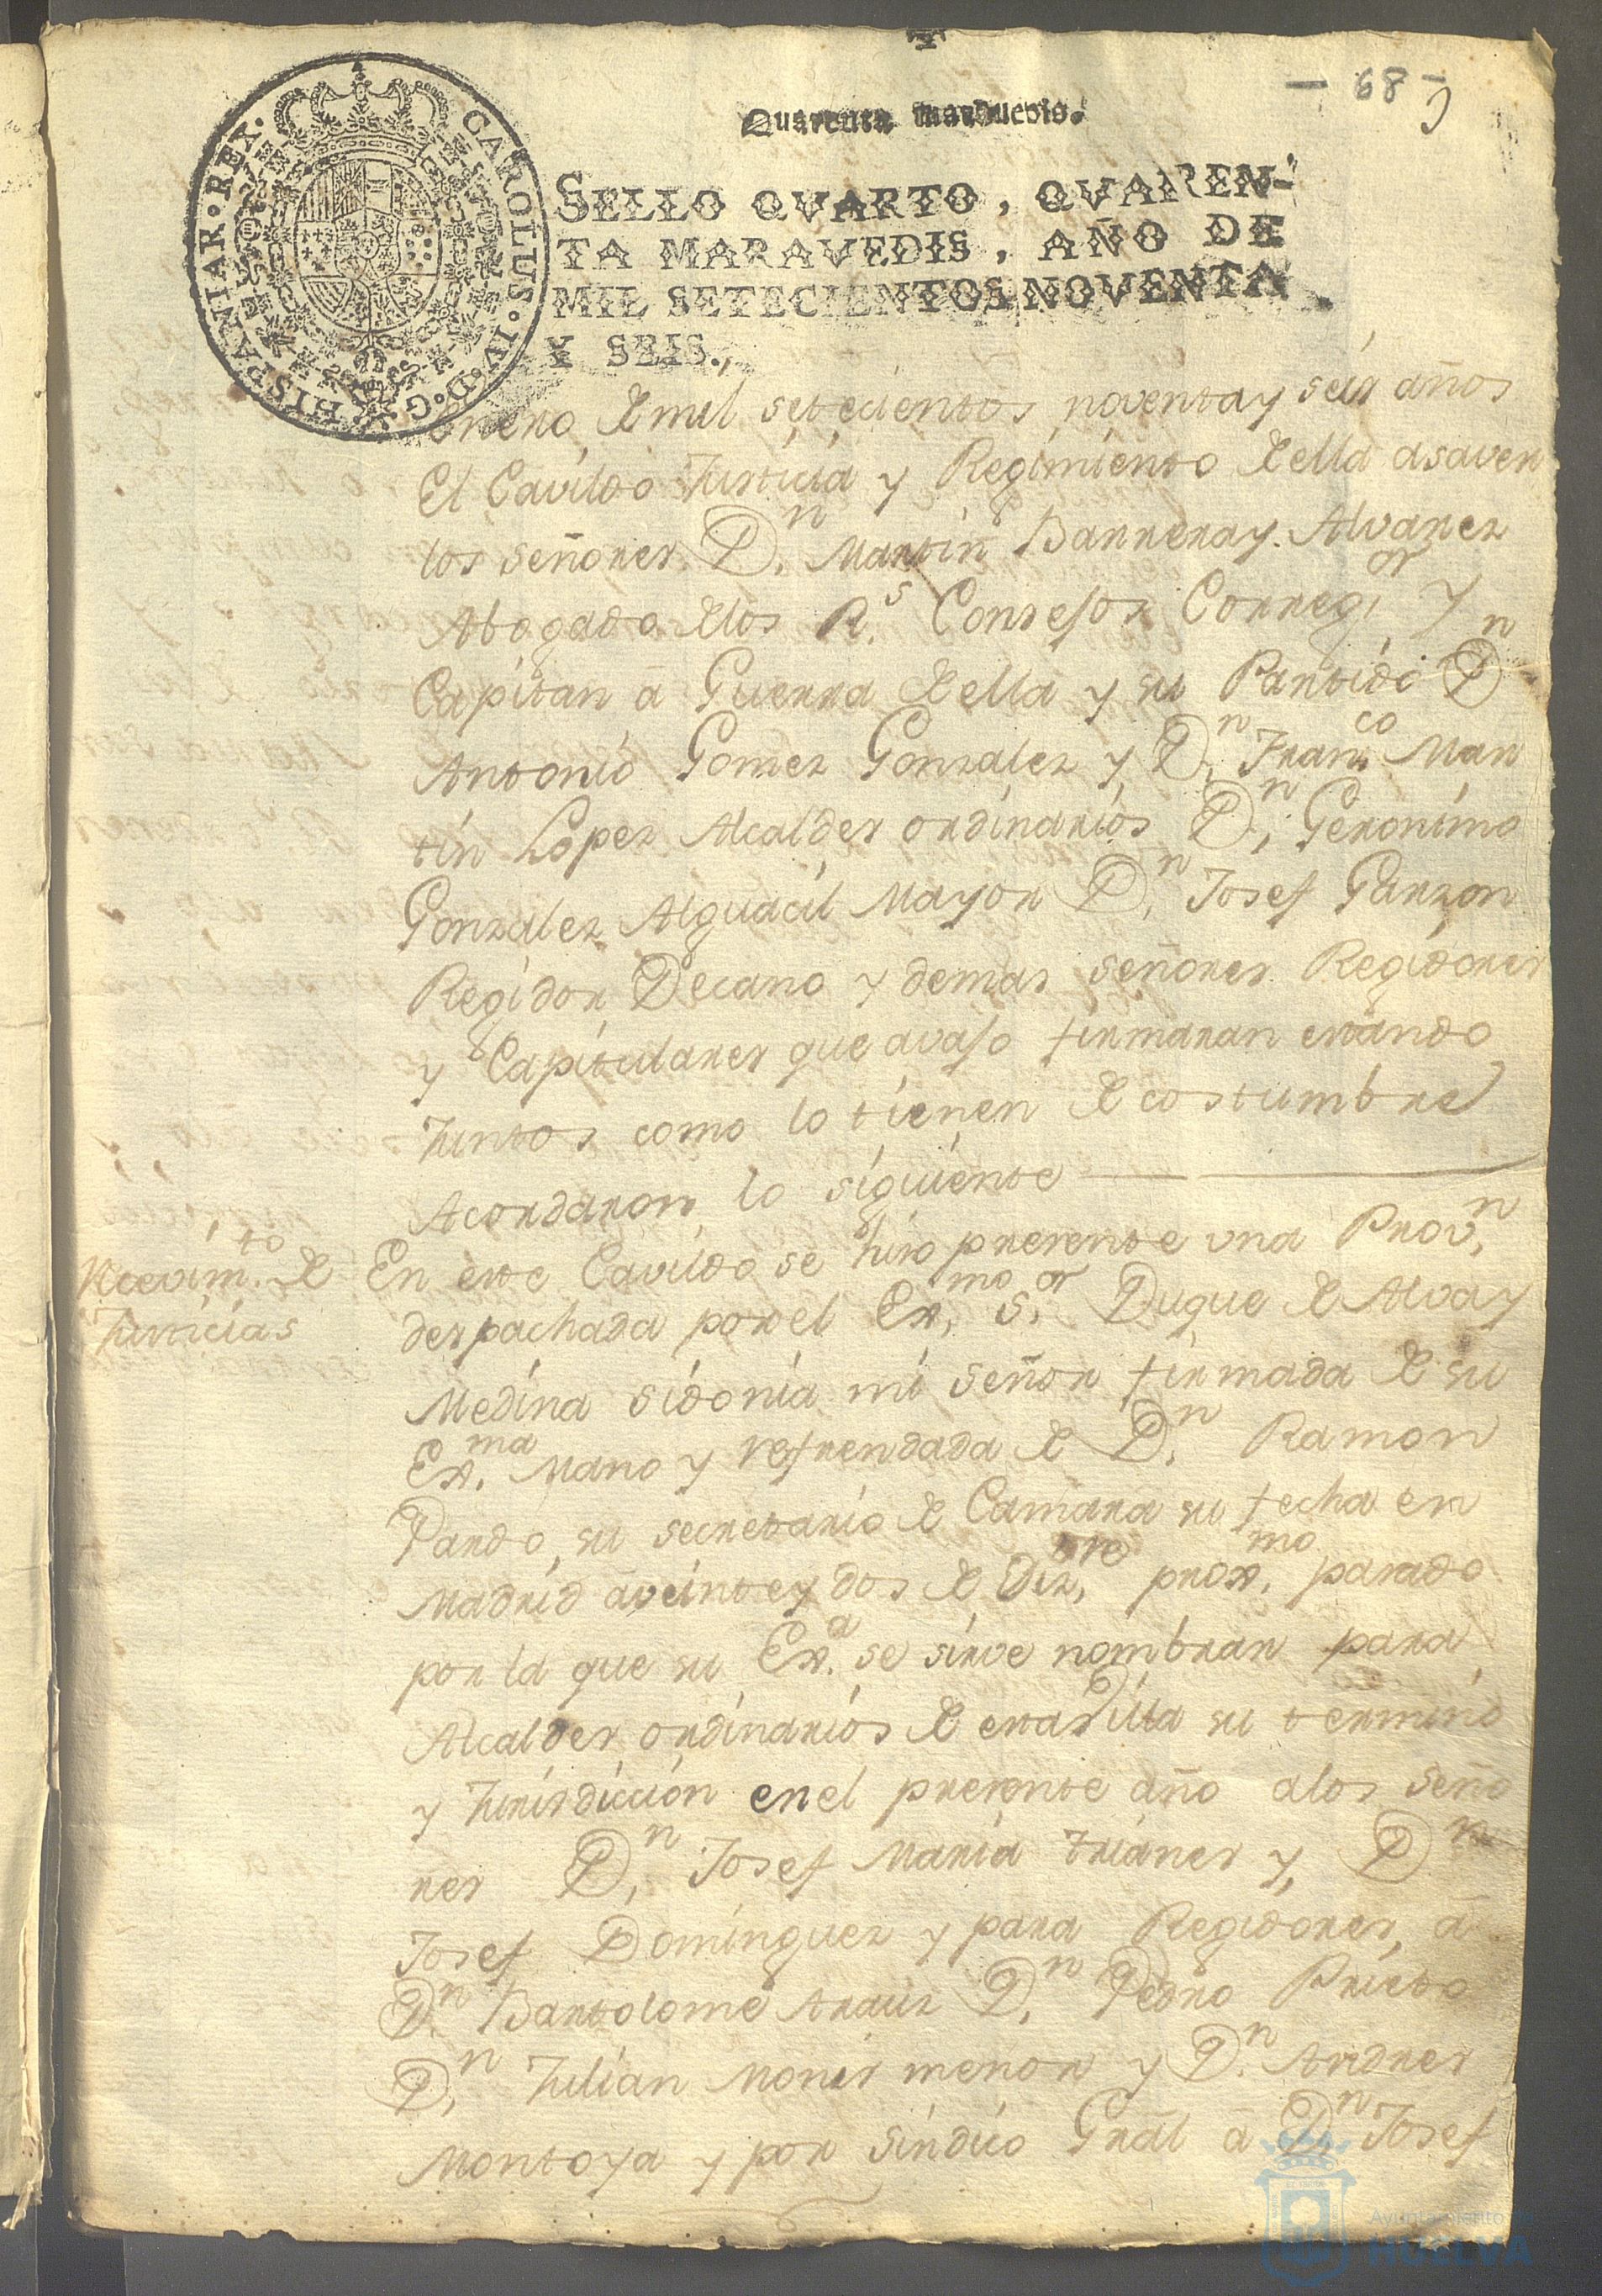 - 68 -
Quarenta maravedis.
CAROLUS·IV·D·G·HISPANIAR·REX·
SELLO QVARTO, QVAREN-
TA MARAVEDIS, AÑO DE
MIL SETECIENTOS NOVENTA
Y SEIS.
Enero de mil setecientos noventa y seis años
El Cavildo Justicia y Regimiento de ella asaver
los señores Dn. Martin Barrera y Alvarez
Abogado de los Rs. Consejos Corregor. y
Capitan â Guerra de ella y su Partido Dn
Antonio Gomez Gonzalez y Dn. Franco. Mar
tin Lopez Alcaldes ordinarios Dn. Geronimo
Gonzalez Alguacil Mayor Dn. Josef Garzon
Regidor Decano y demas señores Regidores
y Capitulares que avajo firmaran estando
Juntos como lo tienen de costumbre
Acordaron lo siguiente
Recevimto. de
Justicias
En este Cavildo se hizo presente una Provn.
despachada por el Exmo. Sor. Duque de Alva y
Medina sidonia mi señor firmada de su
Exma. Mano y refrendada de Dn. Ramon
Pardo, su secretario de Camara su fecha en
Madrid aveinte y dos de Dizre. proxmo. pasado
por la que su Exa. se sirve nombrar para
Alcaldes ordinarios de esta Villa su termino
y Jurisdiccion en el presente año alos seño
res Dn. Josef Maria trianes y Dn
Josef Dominguez y para Regidores, â
Dn. Bartolome Arauz Dn. Pedro Prieto
Dn. Julian Monis menor y Dn. Andres
Montoya y por sindico Gral â Dn Josef
Ayuntamiento de
HUELVA